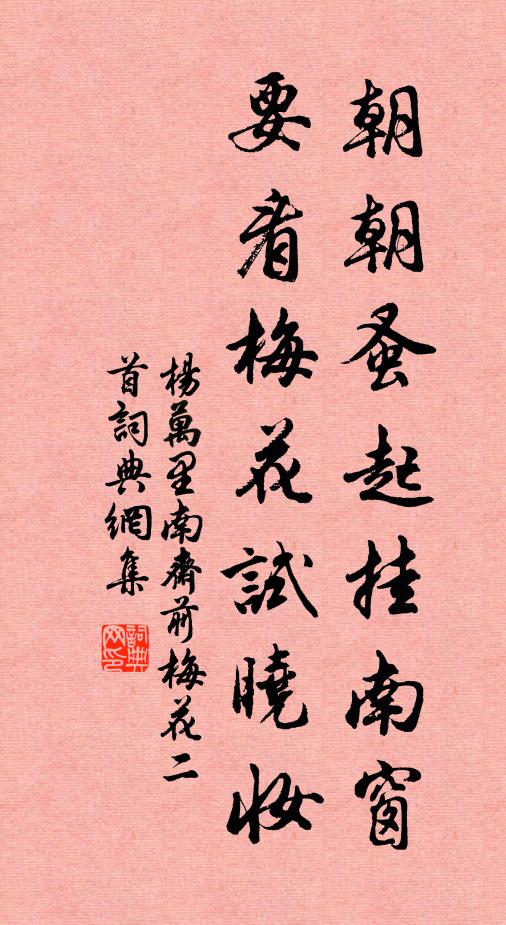 朝朝蚤起挂南窗
要看梅花試曉妝
楊萬里南齋前梅花二
首詞典網集
詞典网印